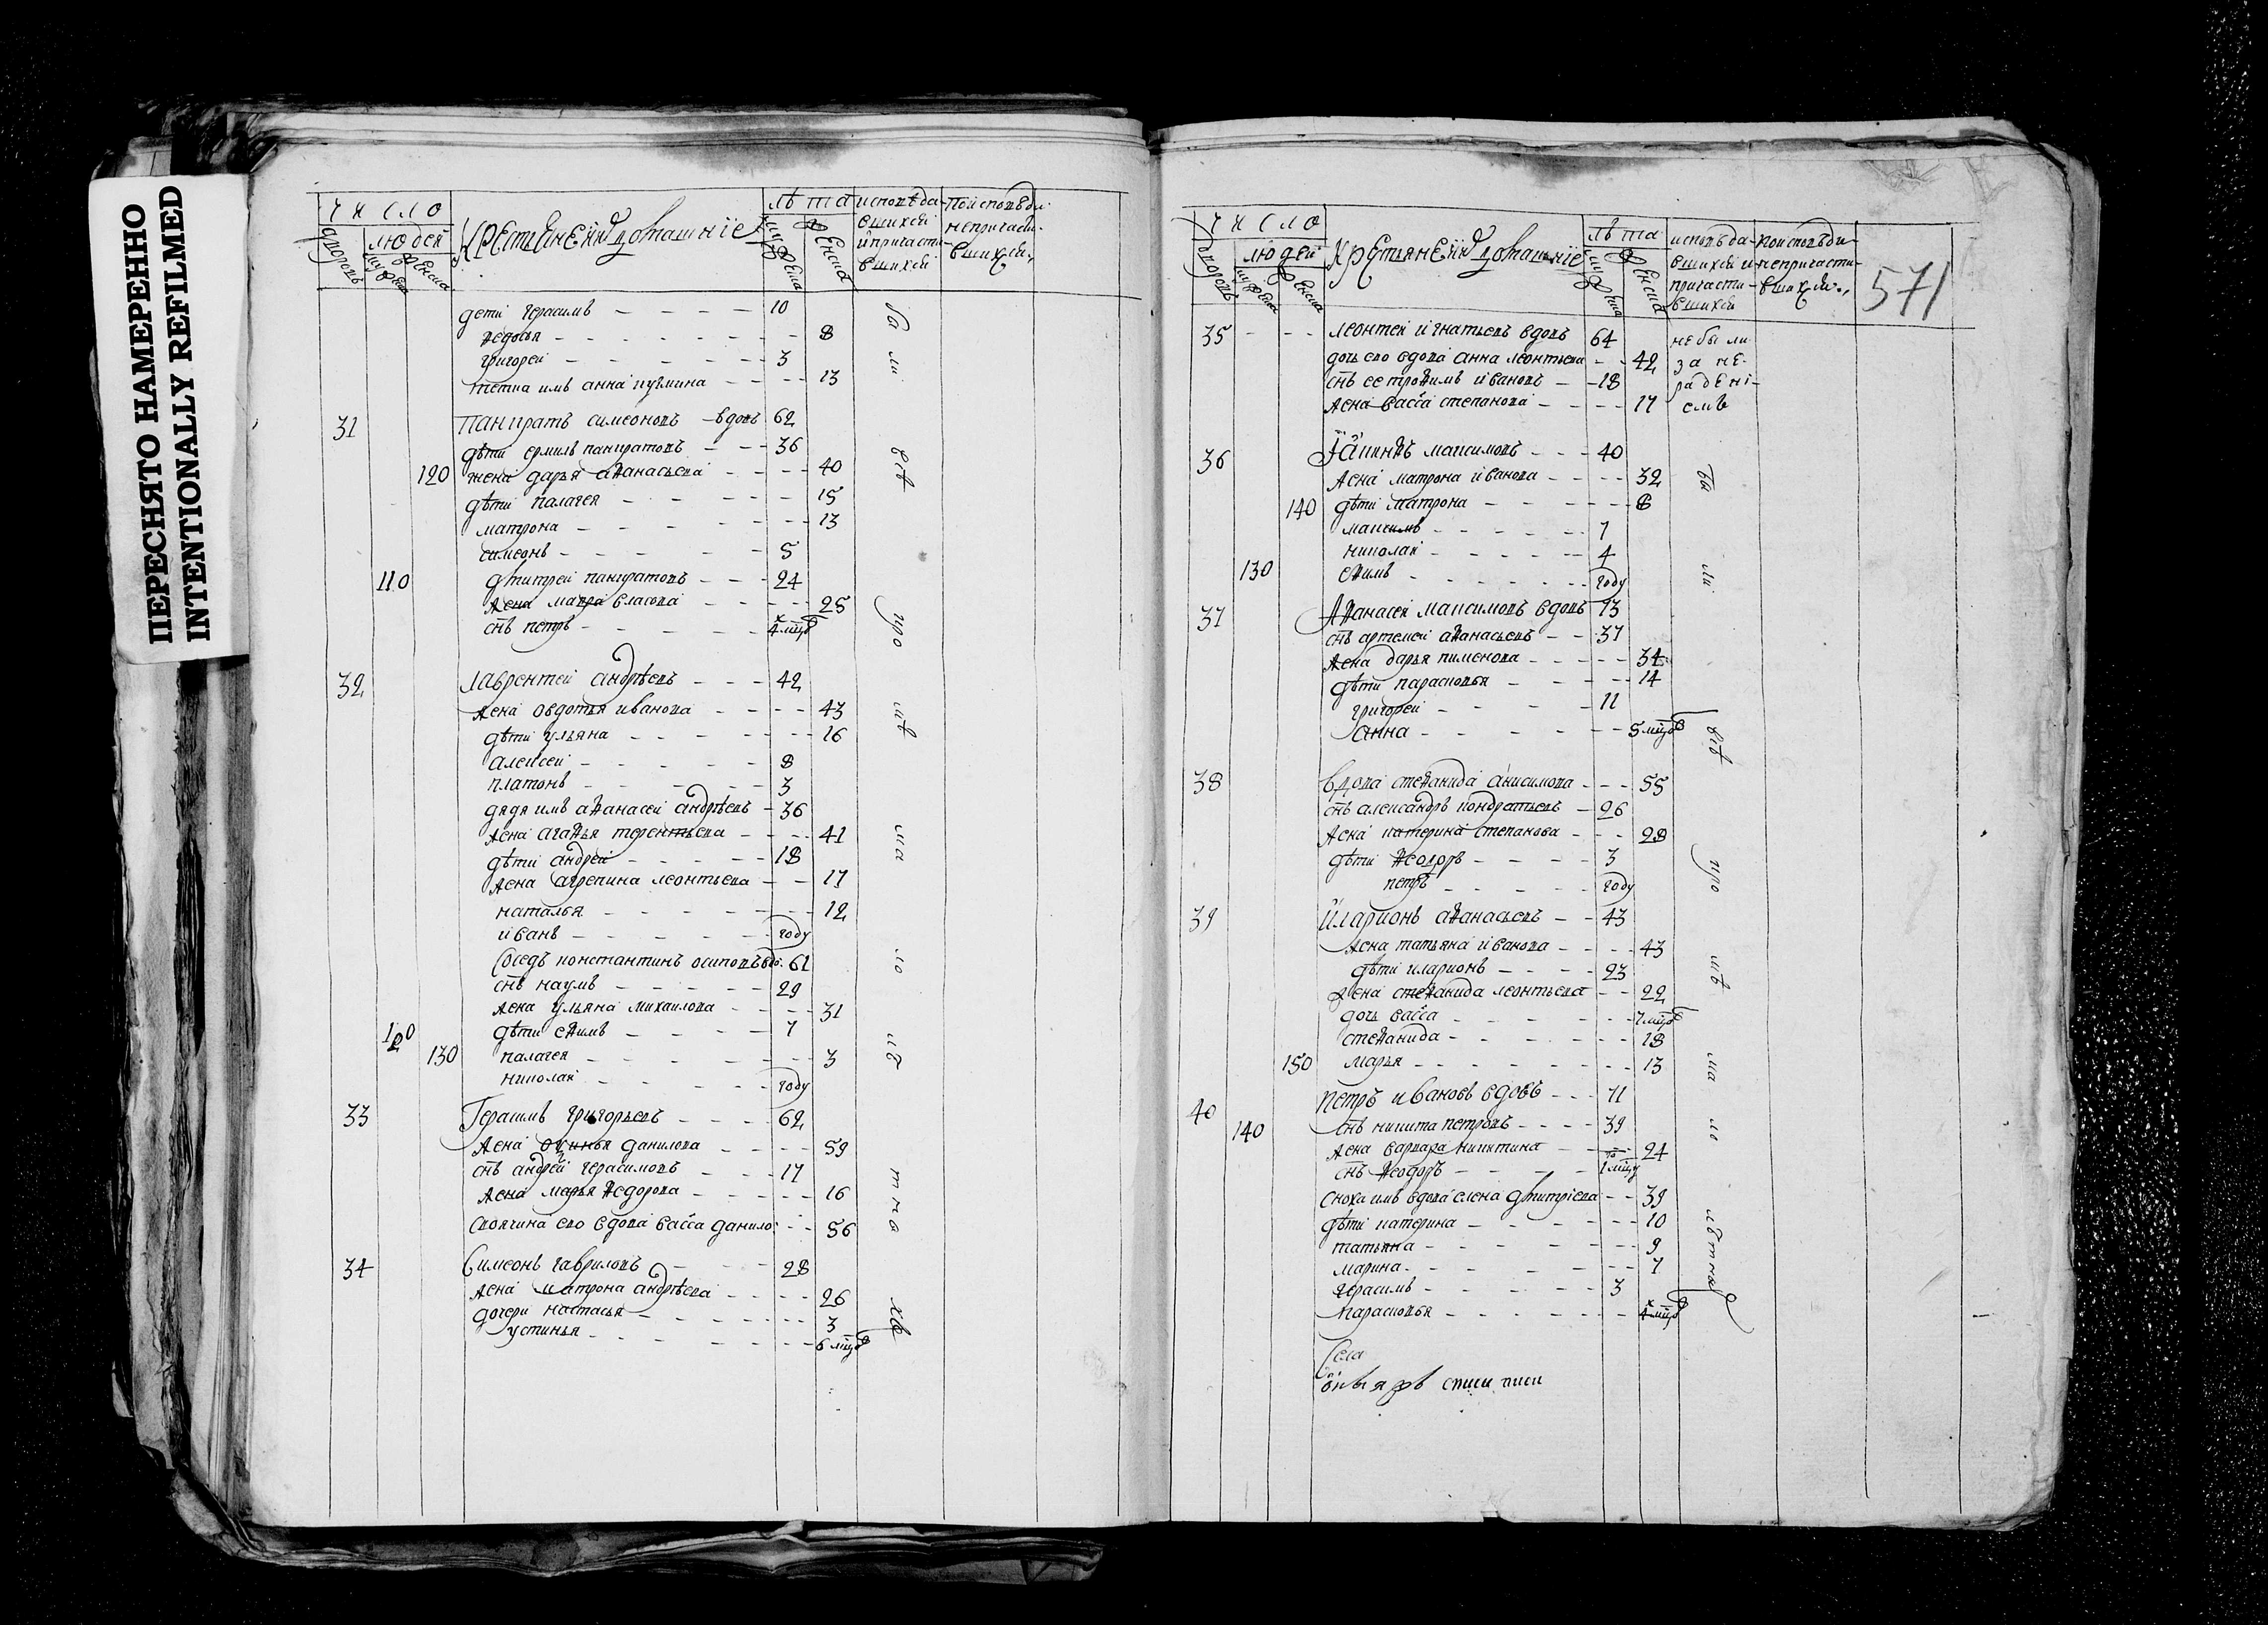 ПЕРЕСНЯТО НАМЕРЕННО
INTENTIONALLY REFILMED
число
людей
крестьяне и их домашние
лѣта
исповѣда-
вшихся
и причасти-
вшихся
по исповѣди
непричасти-
вшихся
дети герасимъ 10
ѳедосья 8
григореи 3
тетка имъ анна кузмина 13
31 Панкратъ симеоновъ вдовъ 62
дѣти ермилъ панкратовъ 36
120 жена дарья аѳанасьева 40
дѣти палагея 15
матрона 13
симеонъ 5
110 дмитреи панкратовъ 24
жена мавра власова 25
снъ петръ 4 мцов
32 Лаврентеи андрѣевъ 42
жена овдотья иванова 43
дѣти ульяна 16
алексеи 8
платонъ 3
дядя имъ аѳанасеи андрѣевъ 36
жена агаѳья терентьева 41
дѣти андреи 18
жена агрепина леонтьева 17
наталья 12
иванъ году
Соседъ константинъ осиповъ вдо: 61
снъ наумъ 29
жена ульяна михаилова 31
120 дѣти еѳимъ 7
130 палагея 3
николаи году
33 Герасимъ григорьевъ 62
жена данилова 59
снъ андреи герасимовъ 17
жена марья ѳедорова 16
своячина ево вдова васса данило: 56
34 Симеонъ гавриловъ 28
жена матрона андрѣева 26
дочери настасья 3
устинья 6 мцов
бы
ли
всѣ
кро
мѣ
ма
ло
лѣ
тно
хъ
число
людеи
крестьяне и их домашние
лѣта
исповѣда-
вшихся и
причасти-
вшихся
по исповѣди
непричасти-
вшихся
571
35 леонтеи игнатьевъ вдовъ 64 небыли
дочь ево вдова анна леонтьева 42 за не-
снъ ее троѳимъ ивановъ 18 радені-
жена васса степанова 17 емъ
36 Іакинѳъ максимовъ 40
жена матрона иванова 32
140 дѣти матрона 8
максимъ 7
николаи 4
130 еѳимъ году
37 Аѳанасеи максимовъ вдовъ 73
снъ артемеи аѳанасьевъ 37
жена дарья пименова 34
дѣти парасковья 14
григореи 11
анна 5 мцов
38 Вдова стеѳанида анисимова 55
снъ александръ кондратьевъ 26
жена катерина степанова 28
дѣти ѳеодоръ 3
петръ году
39 Иларионъ аѳанасьевъ 43
жена татьяна иванова 43
дѣти иларионъ 23
жена стеѳанида леонтьева 22
дочь васса 7 мцов
стеѳанида 18
150 марья 13
40 Петръ ивановъ вдовъ 71
140 снъ никита петровъ 39
жена варвара никитина 24
снъ ѳеодоръ 1 мцу
сноха имъ вдова елена дмитріева 39
дѣти катерина 10
татьяна 9
марина 7
герасимъ 3
парасковья 4 мцов
бы
ли
всѣ
кро
мѣ
ма
ло
лѣтнаг
Села